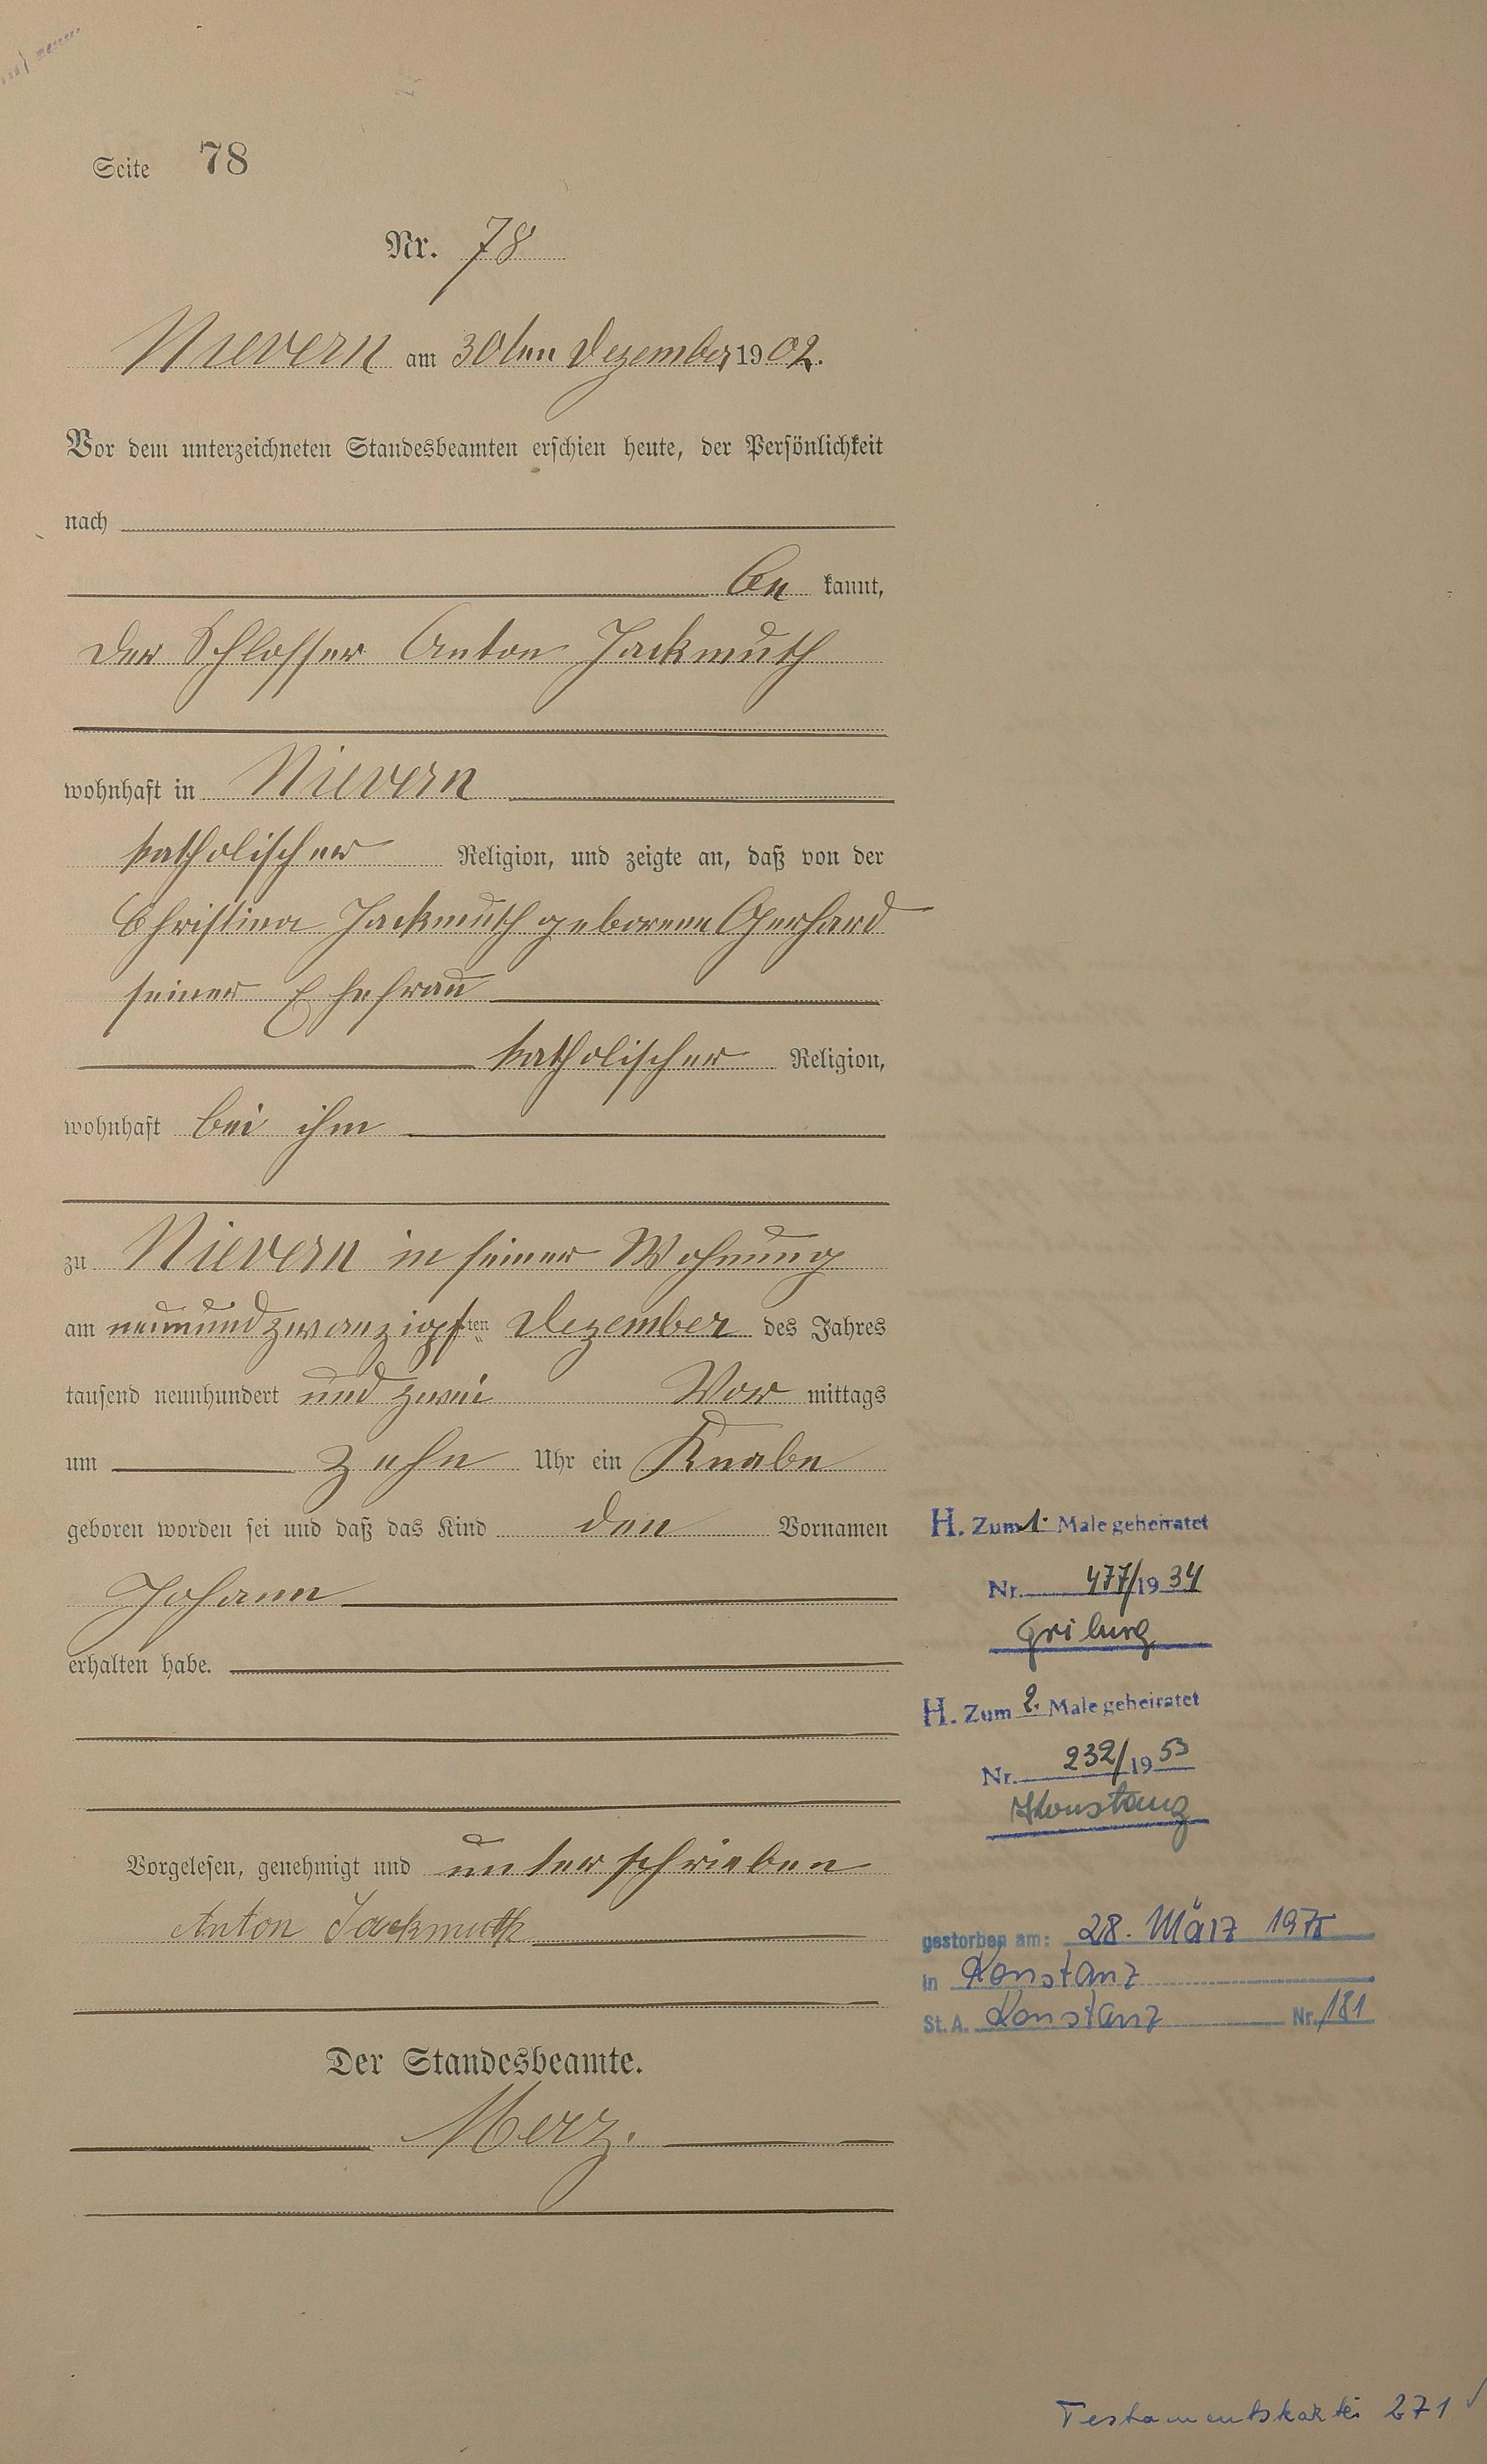 Seite 78
Nr. 78
Nievern am 30ten Dezember 1902.
Vor dem unterzeichneten Standesbeamten erschien heute, der Persönlichkeit
nach
be kannt,
der Schlosser Anton Jackmuth
wohnhaft in Nievern
katholischer Religion, und zeigte an, daß von der
Christina Jackmuth geborene Gerhard
seiner Ehefrau
katholischer Religion,
wohnhaft bei ihm
zu Nievern in seiner Wohnung
am neunundzwanzigsten Dezember des Jahres
tausend neunhundert und zwei Vor mittags
um zehn Uhr ein Knabe
geboren worden sei und daß das Kind den Vornamen
Johann
erhalten habe.
Vorgelesen, genehmigt und unterschrieben
Anton Jackmuth
Der Standesbeamte.
Merz.
H. Zum 1. Male geheiratet
Nr. 477/1934
H. Zum 2. Male geheiratet
Nr. 232/1953
Konstanz
gestorben am: 28. März 1975
in Konstanz
St. A. Konstanz Nr. 181
Testamentskartei 271